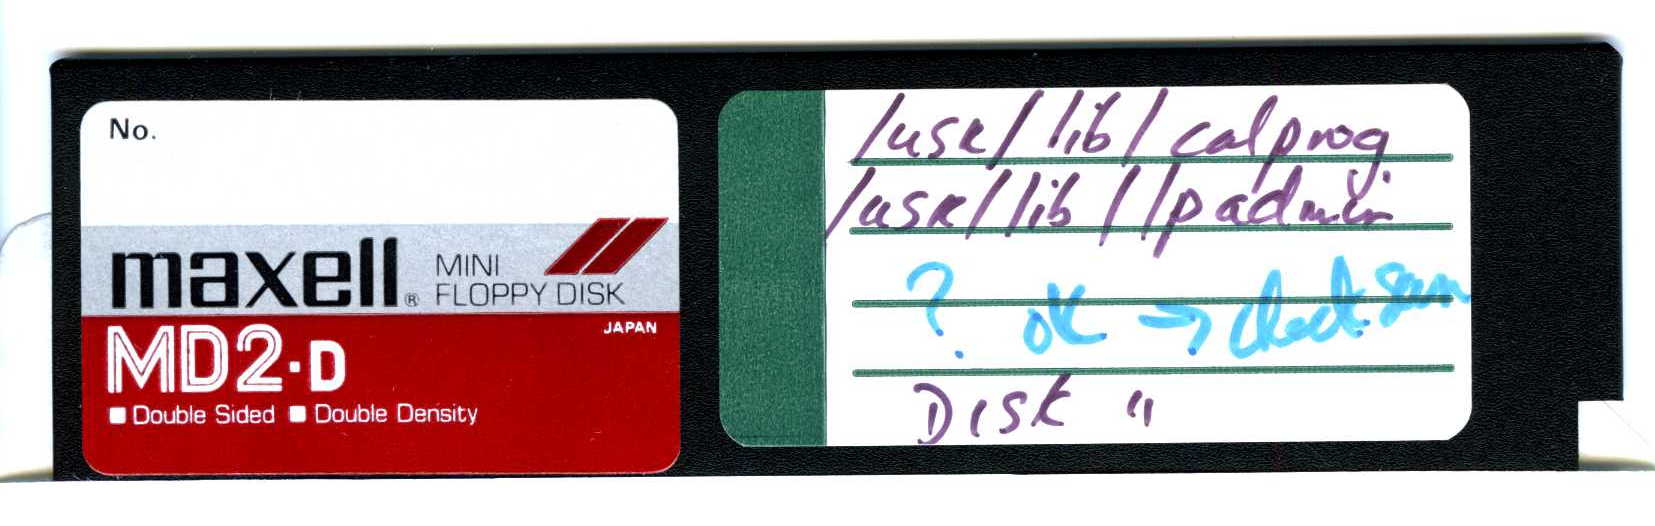 No.
maxell® MINI FLOPPY DISK
JAPAN
MD2-D
Double Sided Double Density
/usr/lib/calprog
/usr/lib/lpadmin
? OK → check sum
Disk "